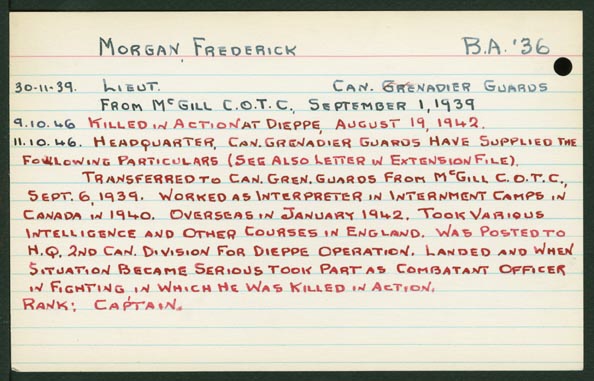 MORGAN, FREDERICK B.A. '36
30-11-39. LIEUT. CAN. GRENADIER GUARDS
FROM McGILL C.O.T.C., SEPTEMBER 1, 1939
9.10.46 KILLED IN ACTION AT DIEPPE, AUGUST 19, 1942.
11.10.46. HEADQUARTER, CAN. GRENADIER GUARDS HAVE SUPPLIED THE
FOLLOWING PARTICULARS (SEE ALSO LETTER IN EXTENSION FILE).
TRANSFERRED TO CAN. GREN. GUARDS FROM McGILL C.O.T.C.,
SEPT. 6, 1939. WORKED AS INTERPRETER IN INTERNMENT CAMPS IN
CANADA IN 1940. OVERSEAS IN JANUARY 1942. TOOK VARIOUS
INTELLIGENCE AND OTHER COURSES IN ENGLAND. WAS POSTED TO
H.Q. 2ND CAN. DIVISION FOR DIEPPE OPERATION. LANDED AND WHEN
SITUATION BECAME SERIOUS TOOK PART AS COMBATANT OFFICER
IN FIGHTING IN WHICH HE WAS KILLED IN ACTION.
RANK: CAPTAIN.